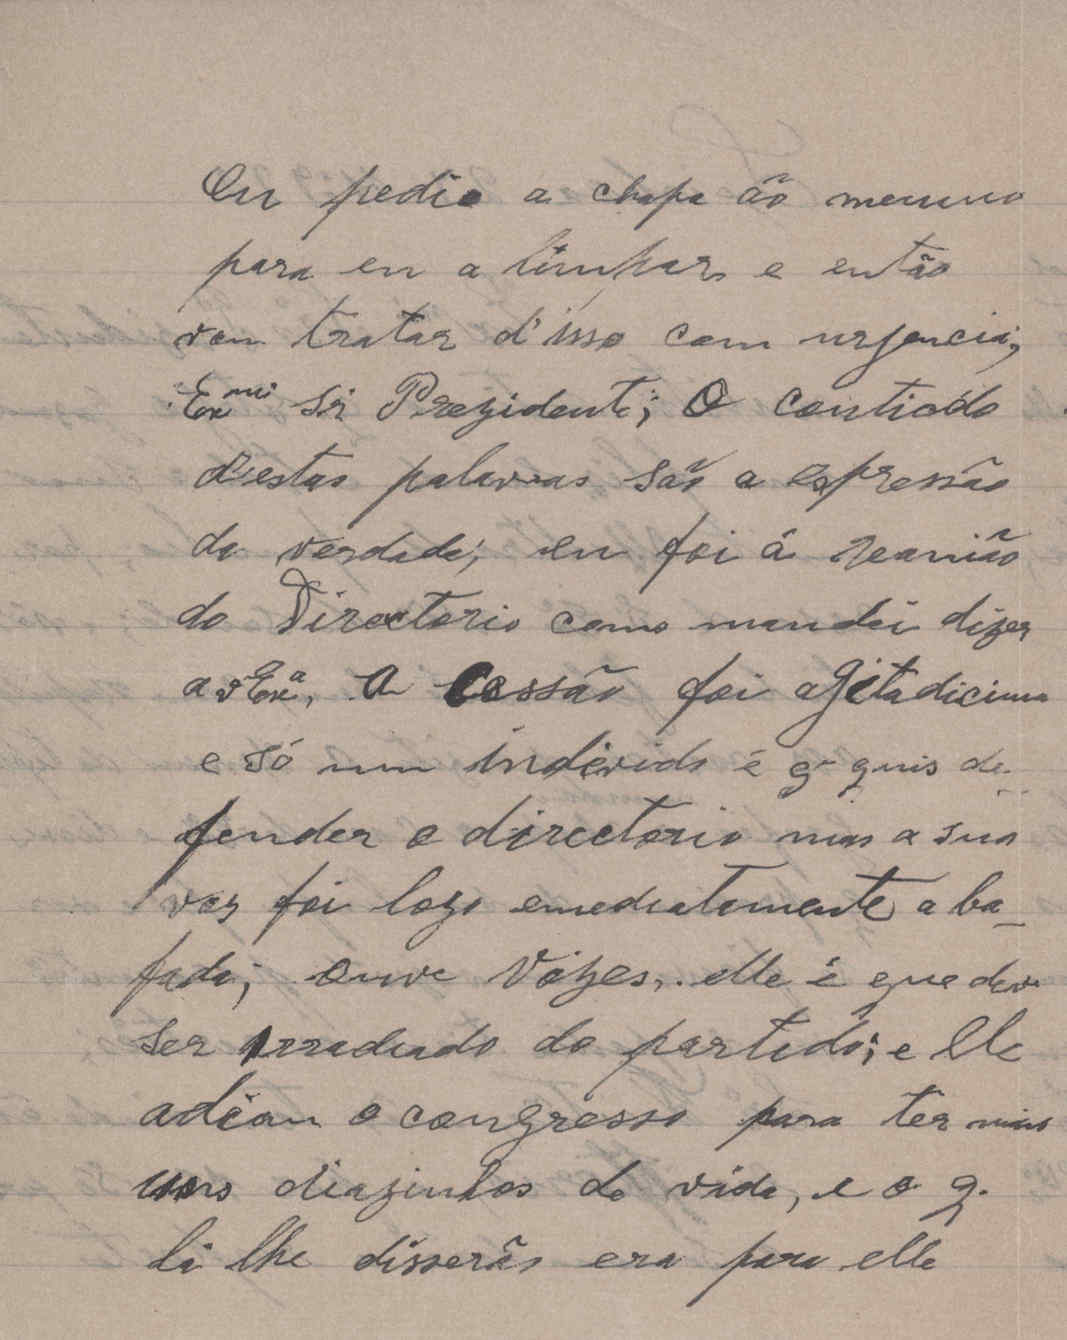 Eu pedio a chapa ão menino
para eu a limpar, e então
vou tratar d'isso com urjencia,
Exmo Sr Prezidente; O contiodo
d'estas palavras são a espressão
da verdade; eu foi á reunião
do Directorio como mandei dizer
a vExa, A cessão foi agitadicima
e só um individo é q. quis de-
fender o directorio mas a sua
voz foi logo emediatamente a ba-
fada; ouve vozes, elle é que deve
ser irradiado do partido; e elle
adiou o congresso para ter mais
uns diazinhos de vida, e o q.
lá lhe disserão era para elle